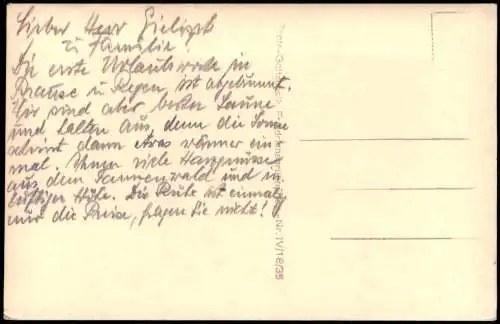 Lieber Herr Gielisch
u. Familie!
Die erste Urlaubswoche in
Brause u. Regen, ist abgebrummt.
Wir sind aber bester Laune
und halten aus, denn die Sonne
scheint dann etwas wärmer ein-
mal. Ihnen viele Harzgrüsse
aus dem Tannenwald und in
luftiger Höhe. Die Ruhe ist einmalig
nur die Preise, fragen Sie nicht!
Nr. IV/18/35